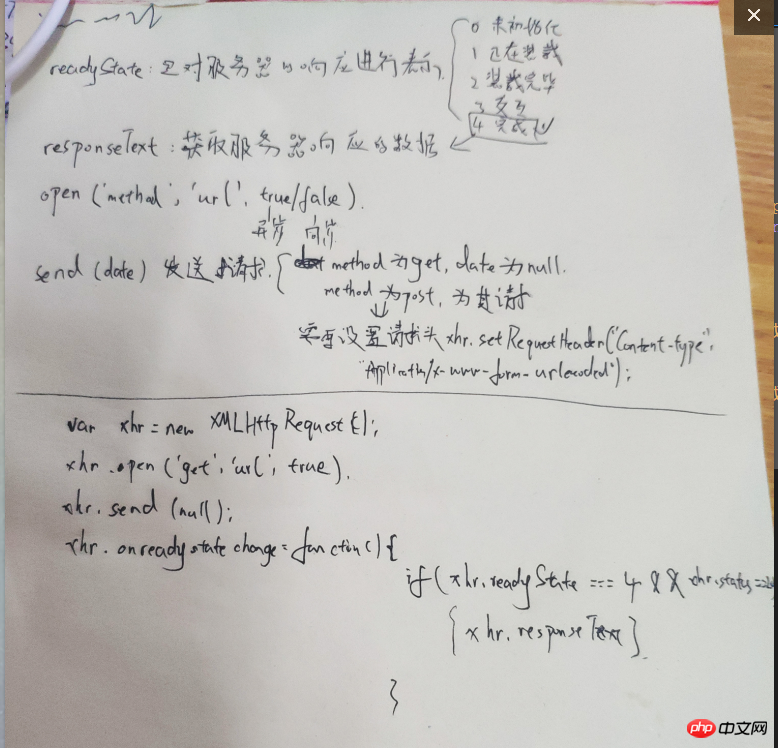 0 未初始化
readyState: 是对服务器的响应进行表示,
1 正在装载
2 装载完毕
3 交互
4 完成
responseText: 获取服务器响应的数据
open ('method', 'url', true/false).
异步 同步
send (date) 发送请求. { method为get, date为null.
method为post, 为其请求
需要设置请求头 xhr.setRequestHeader("Content-type",
"Application/x-www-form-urlencoded");
var xhr = new XMLHttpRequest();
xhr.open ('get', 'url', true).
xhr.send (null);
xhr.onreadystatechange = function() {
if (xhr.readyState === 4 && xhr.status =
{ xhr.responseText }
}
php 中文网